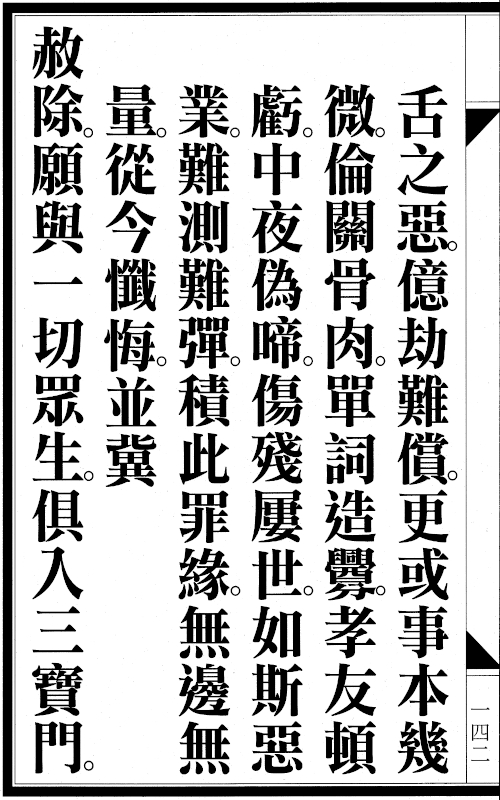 舌之惡。億劫難償。更或事本幾
微。倫關骨肉。單詞造釁。孝友頓
虧。中夜偽啼。傷殘屢世。如斯惡
業。難測難彈。積此罪緣。無邊無
量。從今懺悔。並冀
赦除。願與一切眾生。俱入三寶門。
一四二